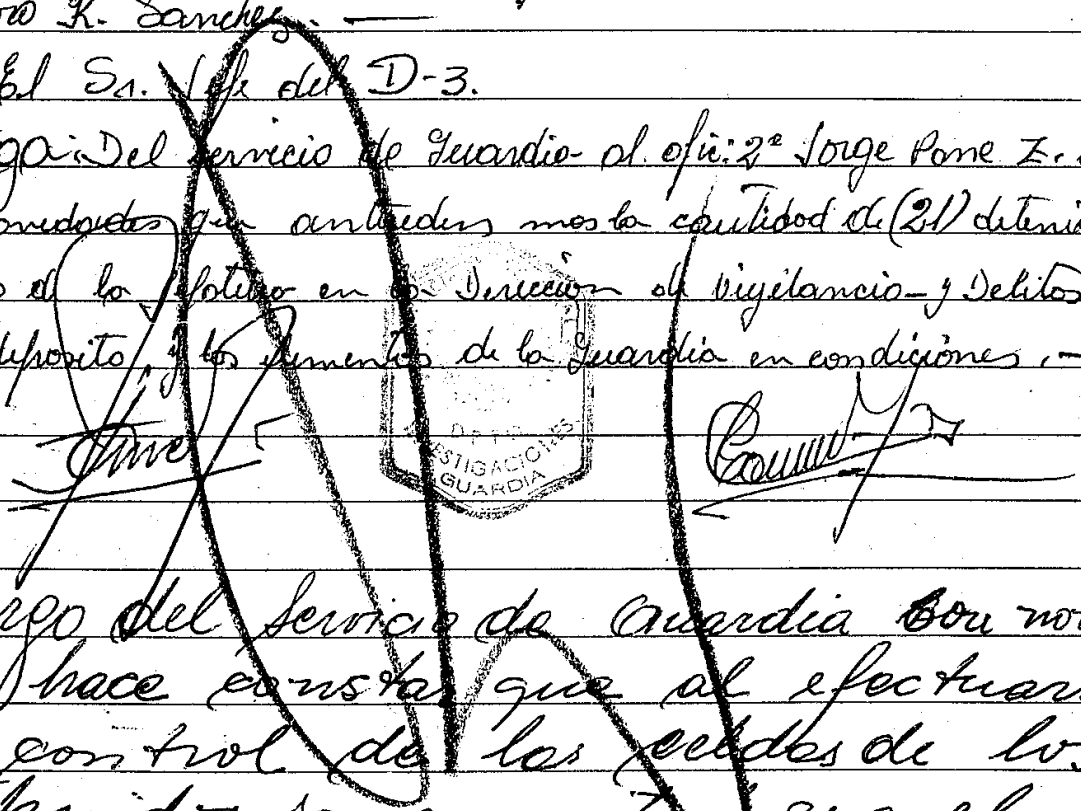 K. Sanchez. —
El Sr. Jefe del D-3.
ga: Del servicio de Guardia al ofic: 2º Jorge Pane Z.
que anteceden mas la cantidad de (21) deteni
de la Jefatura en la Dirección de Vigilancia y Delitos
deposito, y los elementos de la Guardia en condiciones. -
DPTO
INVESTIGACIONES
GUARDIA
rgo del Servicio de Guardia con no
hace constar que al efectuar
control de las celdas de lo